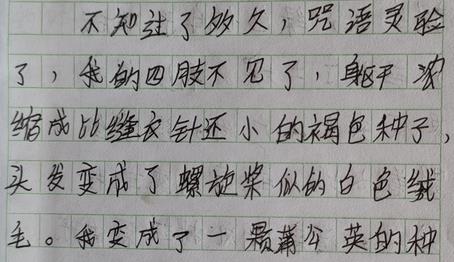 不知过了多久，咒语灵验
了，我的四肢不见了，躯干浓
缩成比缝衣针还小的褐色种子，
头发变成了螺旋桨似的白色绒
毛。我变成了一颗蒲公英的种